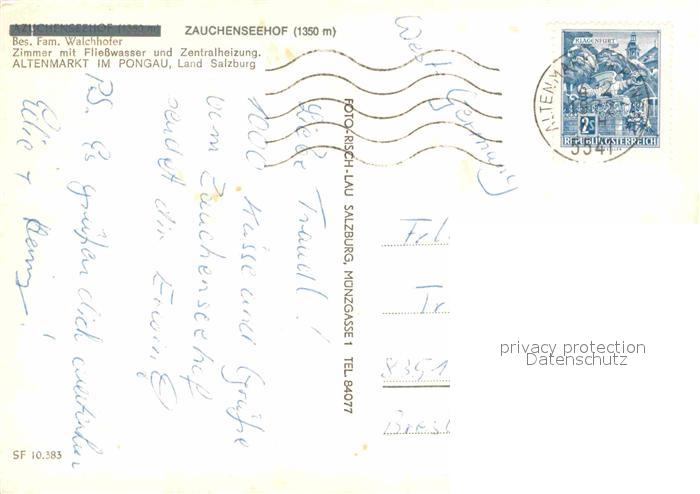 AZUCHENSEEHOF (1350 m)
ZAUCHENSEEHOF (1350 m)
Bes. Fam. Walchhofer
Zimmer mit Fließwasser und Zentralheizung.
ALTENMARKT IM PONGAU, Land Salzburg
Liebe Traudl!
1000 Küsse und Grüße
vom Zauchenseehof
sendet dir Erwin
P.S. Es grüßen dich
+ Heinz!
SF 10.383
FOTO-RISCH-LAU SALZBURG, MÜNZGASSE 1 TEL 84077
West Germany
KLAGENFURT
2S
REPUBLIK ÖSTERREICH
ALTENM
5541
Frl.
Tr
8351
privacy protection
Datenschutz